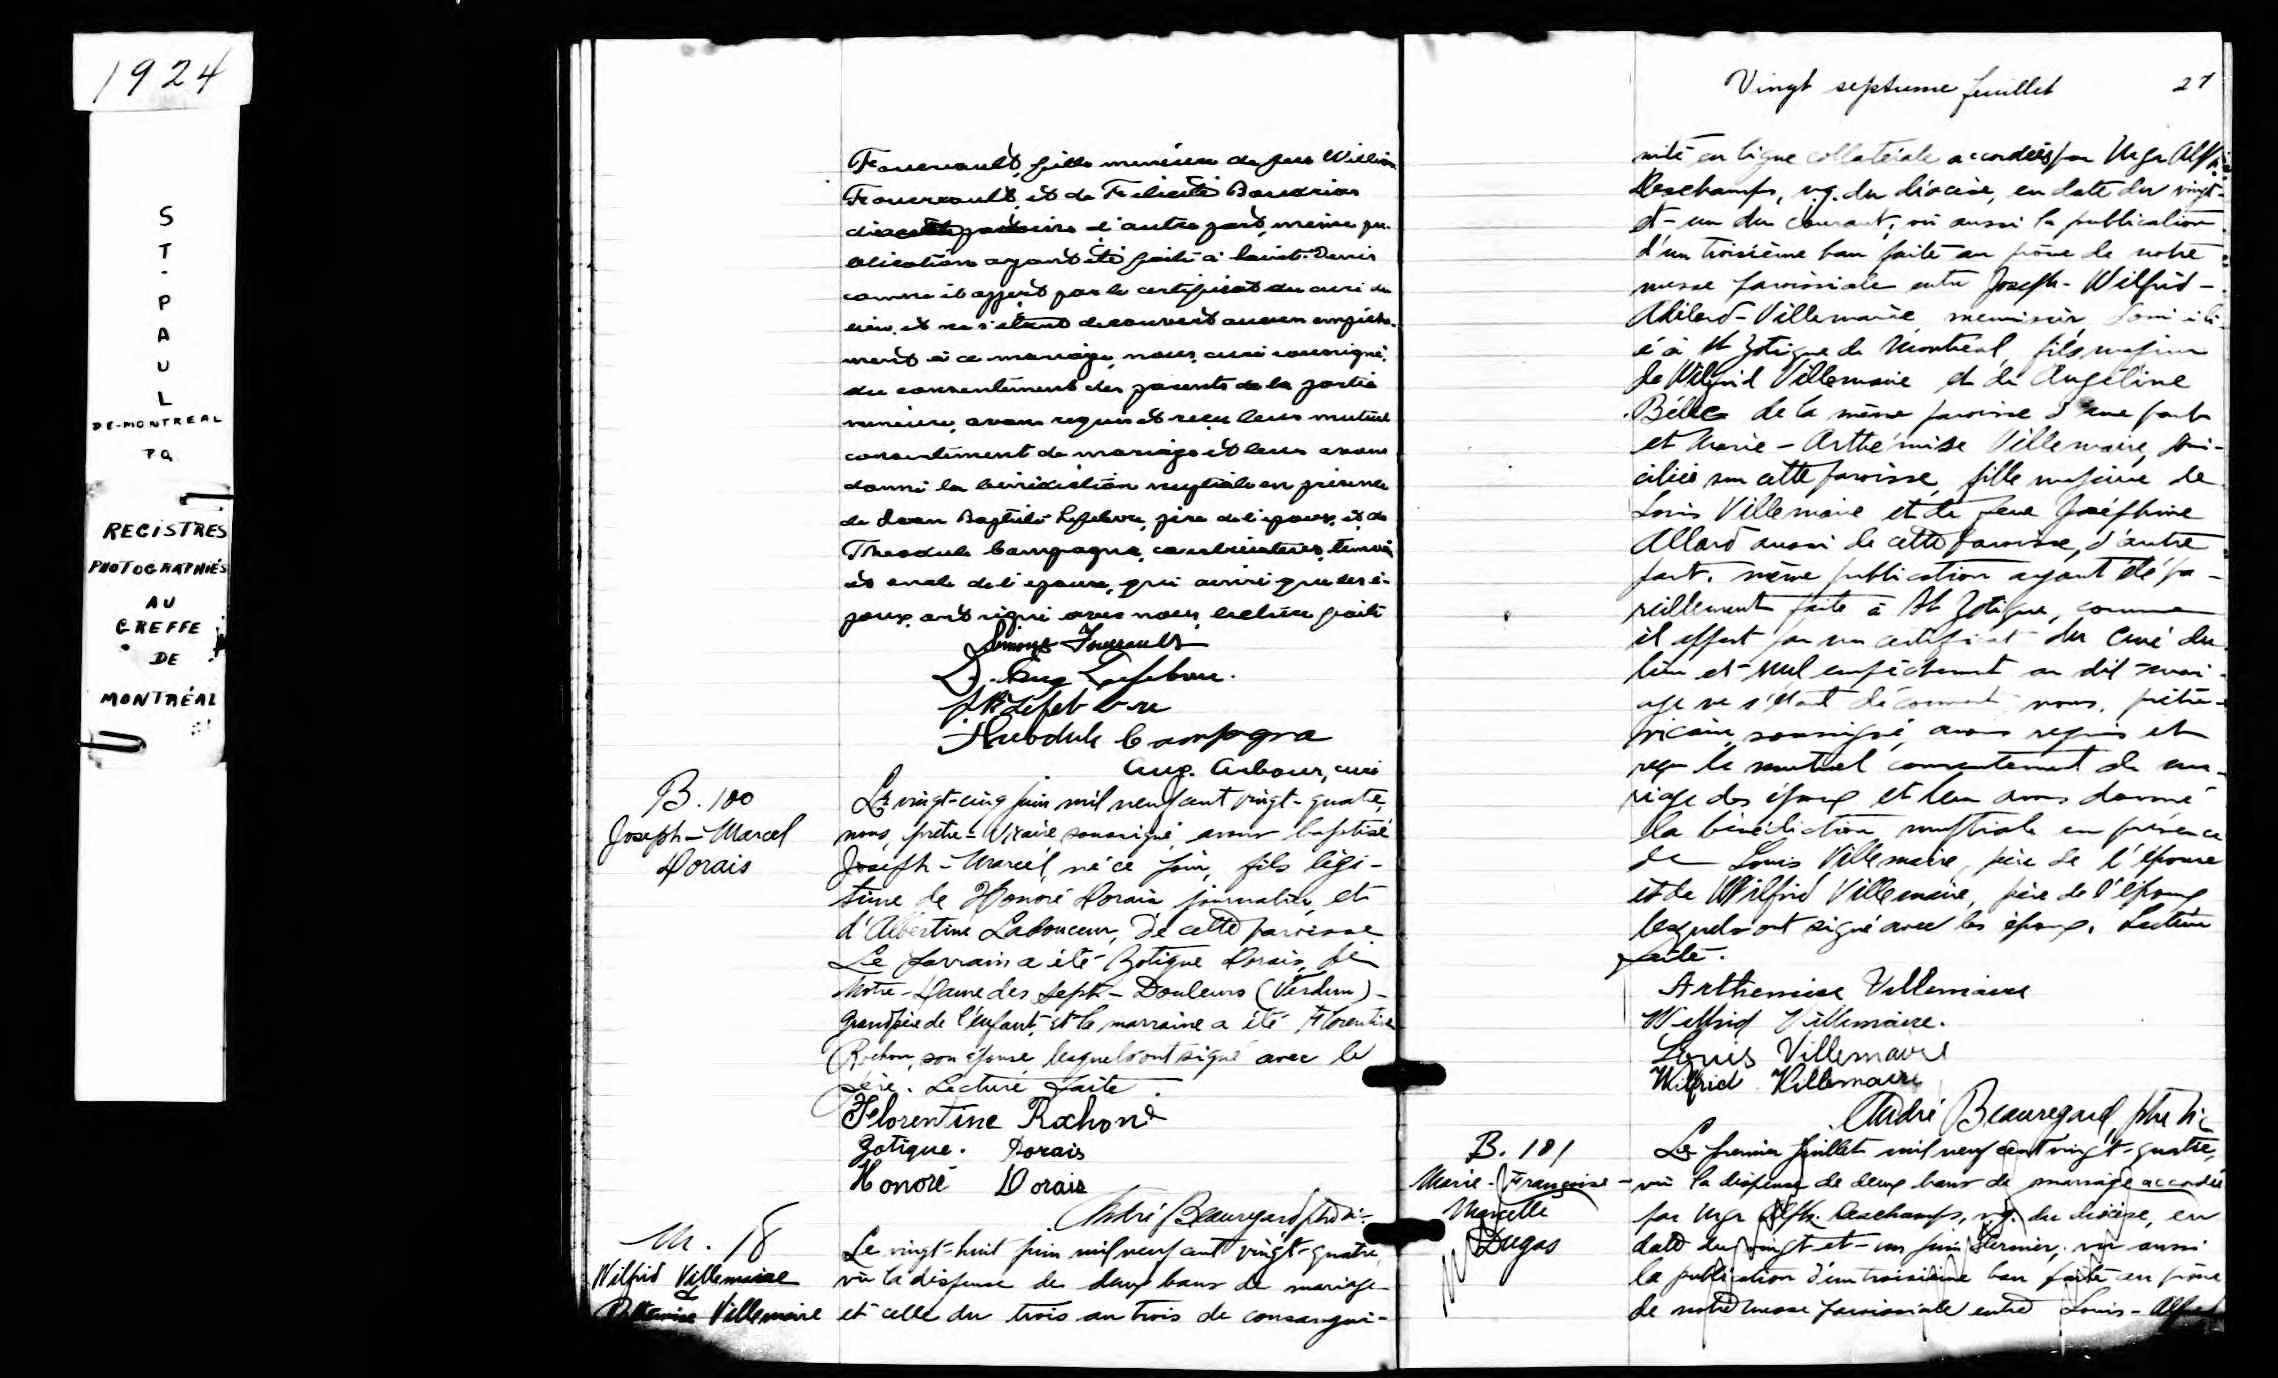 1924
S
T
-
P
A
U
L
DE-MONTREAL
P.Q.
REGISTRES
PHOTOGRAPHIÉS
AU
GREFFE
DE
MONTRÉAL
Foucreault, fille mineure de feu William
Foucreault, et de Felicité
de cette paroisse d'autre part, même pu-
blication ayant été faite à Saint-Denis
comme il appert par le certificat du curé du
lieu, et ne s'étant découvert aucun empêche-
ment à ce mariage, nous, curé soussigné,
du consentement des parents de la partie
mineure, avons requis et reçu leur mutuel
consentement de mariage et leur avons
donné la bénédiction nuptiale en présence
de Jean Baptiste Lefebvre, père de l'époux, et de
Theodule Campagna, témoin
et oncle de l'épouse, qui ainsi que les é-
poux ont signé avec nous, lecture faite
Simone
D. Aug Lefebvre.
J.B. Lefebvre
Theodule Campagna
Aug. Arbour, curé
B. 100
Joseph-Marcel
Dorais
Le vingt-cinq juin mil neuf cent vingt-quatre,
nous, prêtre-vicaire soussigné, avons baptisé
Joseph-Marcel, né ce jour, fils légi-
time de Honoré Dorais journalier, et
d'Albertine Ladouceur, de cette paroisse
Le parrain a été Zotique Dorais, de
Notre-Dame des Sept-Douleurs (Verdun)-
grand père de l'enfant, et la marraine a été Florentine
Rochon, son épouse, lesquels ont signé avec le
père. Lecture faite.
Florentine Rochon
Zotique. Dorais
Honoré Dorais
André Beauregard ptre vic.
M. 18
Wilfrid Villemaire
&
Arthemise Villemaire
Le vingt-huit juin mil neuf cent vingt-quatre,
vu la dispense de deux bans de mariage
et celle du trois au trois de consangui-
Vingt septieme feuillet 27
nité en ligne collatérale accordées par Mgr Alph.
Deschamps, v.g. du diocèse, en date du vingt-
et-un du courant; vu aussi la publication
d'un troisième ban faite au prône de notre
messe paroissiale entre Joseph-Wilfrid-
Adélard-Villemaire menuisier, domicili-
é à St Zotique de Montréal, fils majeur
de Wilfrid Villemaire et de Angéline
de la même paroisse d'une part
et Marie-Arthémise Villemaire, domi-
ciliée sur cette paroisse, fille majeure de
Louis Villemaire et de feue Joséphine
Allard aussi de cette paroisse, d'autre
part. même publication ayant été pa-
reillement faite à St Zotique, comme
il appert par un certificat du Curé du
lieu et nul empêchement au dit mari-
age ne s'étant découvert nous, prêtre-
vicaire soussigné, avons requis et
reçu le mutuel consentement de ma-
riage des époux et leur avons donné
la bénédiction nuptiale en présence
de Louis Villemaire, père de l'épouse
et de Wilfrid Villemaire, père de l'époux
lesquels ont signé avec les époux. Lecture
faite.
Arthemise Villemaire
Wilfrid Villemaire.
Louis Villemaire
Wilfrid Villemaire
André Beauregard, ptre vic
B. 101
Marie-Françoise-
Marcelle
Dugas
Le premier juillet mil neuf cent vingt-quatre,
vu la dispense de deux bans de mariage accordée
par Mgr Alph. Deschamps, v.g. du diocèse, en
date du vingt-et-un juin dernier, vu aussi
la publication d'un troisième ban faite au prône
de notre messe paroissiale entre Louis-Alfred